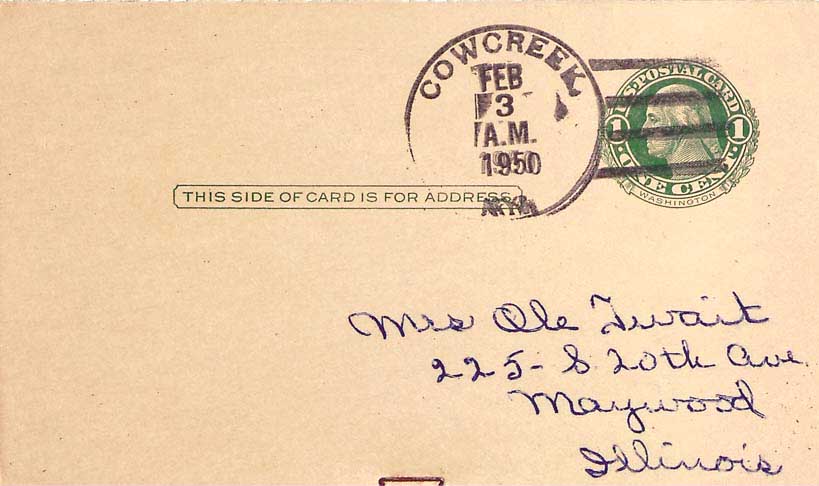 COWCREEK
FEB
3
A.M.
1950
U.S. POSTAL CARD
1 1
ONE CENT
WASHINGTON
THIS SIDE OF CARD IS FOR ADDRESS
Mrs Ole Twait
225- S 20th Ave
Maywood
Illinois